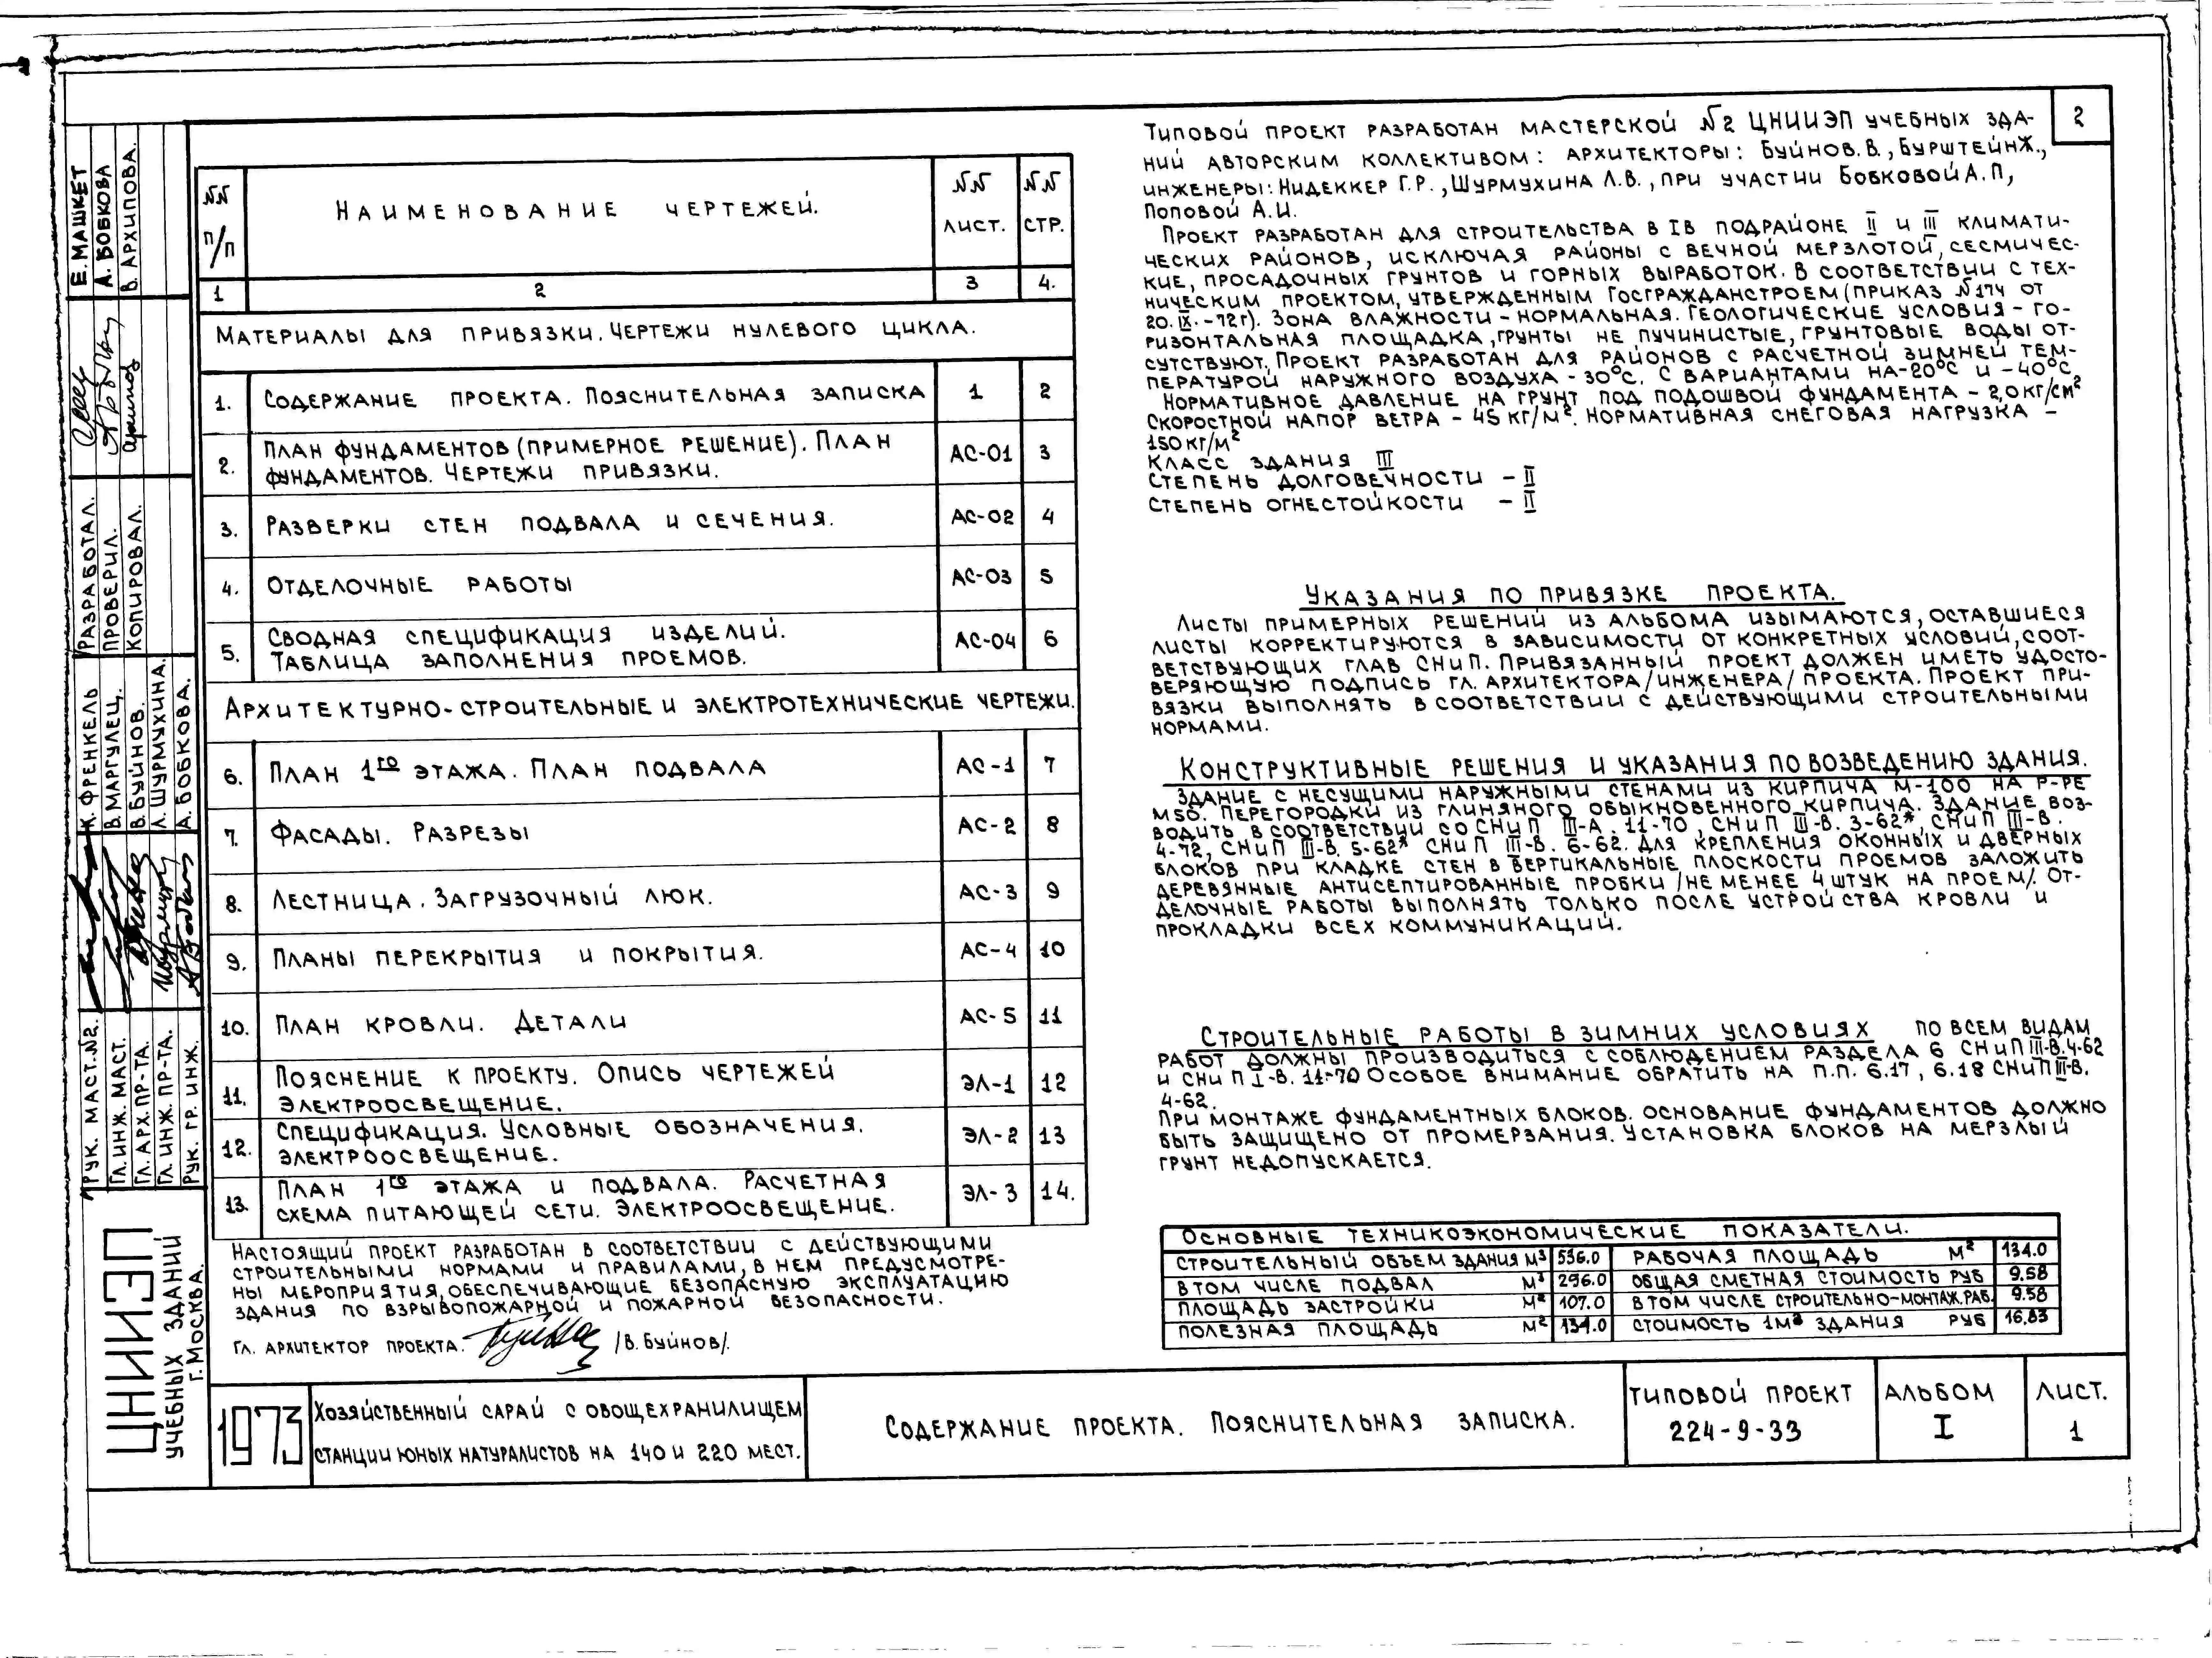 2
NN п/п
Наименование чертежей.
NN лист.
NN стр.
1 2 3 4.
Материалы для привязки. Чертежи нулевого цикла.
1. Содержание проекта. Пояснительная записка 1 2
2. План фундаментов (примерное решение). План
фундаментов. Чертежи привязки. АС-01 3
3. Разверки стен подвала и сечения. АС-02 4
4. Отделочные работы АС-03 5
5. Сводная спецификация изделий.
Таблица заполнения проемов. АС-04 6
Архитектурно-строительные и электротехнические чертежи.
6. План 1го этажа. План подвала АС-1 7
7. Фасады. Разрезы АС-2 8
8. Лестница. Загрузочный люк. АС-3 9
9. Планы перекрытия и покрытия. АС-4 10
10. План кровли. Детали АС-5 11
11. Пояснение к проекту. Опись чертежей
электроосвещение. ЭЛ-1 12
12. Спецификация. Условные обозначения.
электроосвещение. ЭЛ-2 13
13. План 1го этажа и подвала. Расчетная
схема питающей сети. Электроосвещение. ЭЛ-3 14.
Настоящий проект разработан в соответствии с действующими
строительными нормами и правилами, в нем предусмотре-
ны мероприятия, обеспечивающие безопасную эксплуатацию
здания по взрывопожарной и пожарной безопасности.
Гл. архитектор проекта. /В. Буйнов/.
Типовой проект разработан мастерской №2 ЦНИИЭП учебных зда-
ний авторским коллективом: архитекторы: Буйнов.В., Бурштейн Ж.,
инженеры: Нидеккер Г.Р., Шурмухина Л.В., при участии Бобковой А.П,
Поповой А.И.
Проект разработан для строительства в IВ подрайоне II и III климати-
ческих районов, исключая районы с вечной мерзлотой, сесмичес-
кие, просадочных грунтов и горных выработок. В соответствии с тех-
ническим проектом, утвержденным Госгражданстроем (приказ №174 от
20.IX.-72г). Зона влажности - нормальная. Геологические условия - го-
ризонтальная площадка, грунты не пучинистые, грунтовые воды от-
сутствуют. Проект разработан для районов с расчетной зимней тем-
пературой наружного воздуха -30°С. С вариантами на -20°С и -40°С.
Нормативное давление на грунт под подошвой фундамента - 2,0 кг/см²
Скоростной напор ветра - 45 кг/м². Нормативная снеговая нагрузка -
150 кг/м²
Класс здания III
Степень долговечности - II
Степень огнестойкости - II
Указания по привязке проекта.
Листы примерных решений из альбома изымаются, оставшиеся
листы корректируются в зависимости от конкретных условий, соот-
ветствующих глав СНиП. Привязанный проект должен иметь удосто-
веряющую подпись гл. архитектора /инженера/ проекта. Проект при-
вязки выполнять в соответствии с действующими строительными
нормами.
Конструктивные решения и указания по возведению здания.
Здание с несущими наружными стенами из кирпича М-100 на р-ре
М50. Перегородки из глиняного обыкновенного кирпича. Здание воз-
водить в соответствии со СНиП III-А. 11-70, СНиП III-В. 3-62*, СНиП III-В.
4-72, СНиП III-В. 5-62* СНиП III-В. 6-62. Для крепления оконных и дверных
блоков при кладке стен в вертикальные плоскости проемов заложить
деревянные антисептированные пробки /не менее 4 штук на проем/. От-
делочные работы выполнять только после устройства кровли и
прокладки всех коммуникаций.
Строительные работы в зимних условиях по всем видам
работ должны производиться с соблюдением раздела 6 СНиП III-В.4-62
и СНиП I-В. 11-70 Особое внимание обратить на п.п. 6.17, 6.18 СНиП III-В.
4-62.
При монтаже фундаментных блоков. Основание фундаментов должно
быть защищено от промерзания. Установка блоков на мерзлый
грунт недопускается.
Основные техникоэкономические показатели.
Строительный объем здания м³ 536.0 Рабочая площадь м² 134.0
В том числе подвал м³ 296.0 Общая сметная стоимость руб 9.58
Площадь застройки м² 107.0 В том числе строительно-монтаж. раб. 9.58
Полезная площадь м² 134.0 Стоимость 1м³ здания руб 16,83
Е. Машкет
А. Бобкова
В. Архипова.
Разработал.
Проверил.
Копировал.
К. Френкель
В. Маргулец.
В. Буйнов.
Л. Шурмухина.
А. Бобкова.
Рук. маст. №2.
Гл. инж. маст.
Гл. арх. пр-та.
Гл. инж. пр-та.
Рук. гр. инж.
ЦНИИЭП
учебных зданий
г. Москва.
1973
Хозяйственный сарай с овощехранилищем
станции юных натуралистов на 140 и 220 мест.
Содержание проекта. Пояснительная записка.
Типовой проект
224-9-33
Альбом
I
Лист.
1